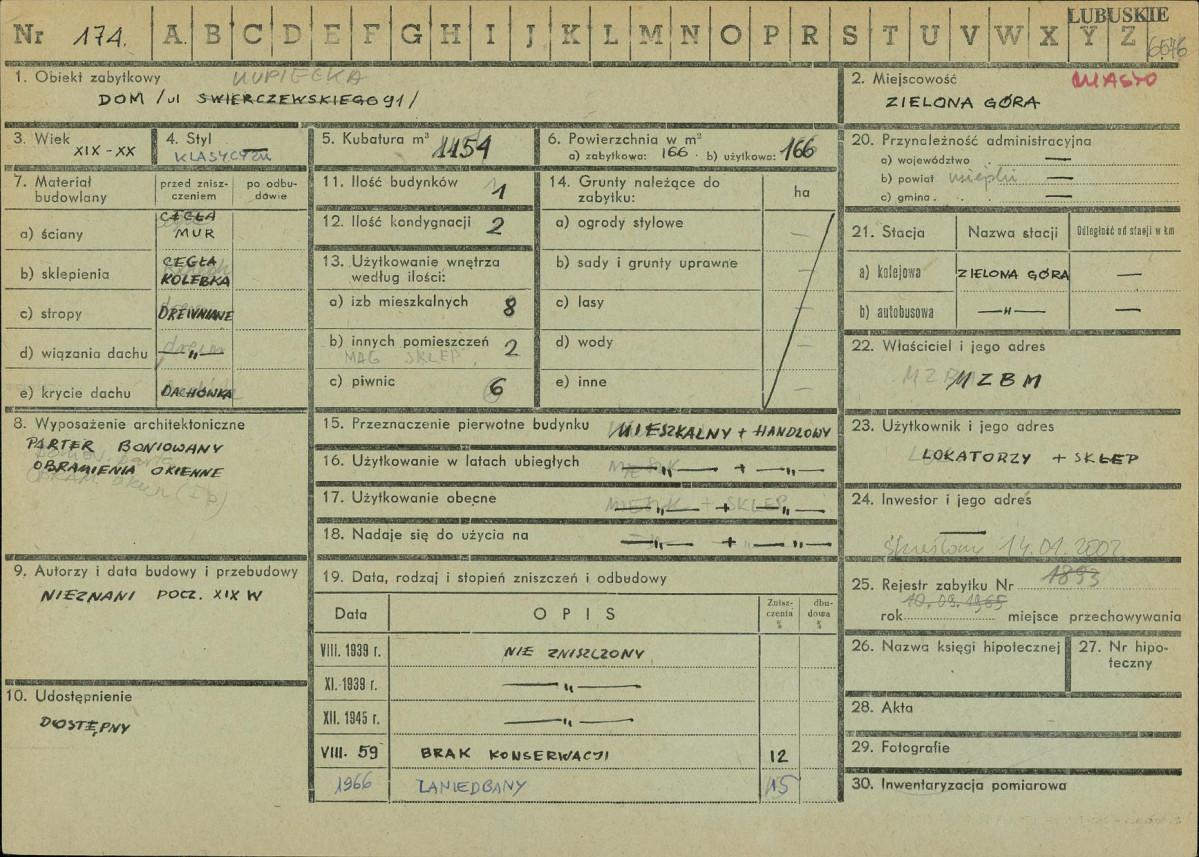 LUBUSKIE
Nr 174. A B C D E F G H I J K L M N O P R S T U V W X Y Z 6546
1. Obiekt zabytkowy KUPIECKA
DOM / ul SWIERCZEWSKIEGO 91 /
2. Miejscowość MIASTO
ZIELONA GÓRA
3. Wiek XIX - XX
4. Styl KLASYCYZM
5. Kubatura m³ 1454
6. Powierzchnia w m²
a) zabytkowa: 166 . b) użytkowa: 166
7. Materiał budowlany
przed zniszczeniem
po odbudowie
a) ściany CEGŁA MUR
b) sklepienia CEGŁA KOLEBKA
c) stropy DREWNIANE
d) wiązania dachu — „ —
e) krycie dachu DACHÓWKA
8. Wyposażenie architektoniczne
PARTER BONIOWANY
OBRAMIENIA OKIENNE
9. Autorzy i data budowy i przebudowy
NIEZNANI POCZ. XIX W
10. Udostępnienie
DOSTĘPNY
11. Ilość budynków 1
12. Ilość kondygnacji 2
13. Użytkowanie wnętrza
według ilości:
a) izb mieszkalnych 8
b) innych pomieszczeń 2
MAG SKLEP.
c) piwnic 6
14. Grunty należące do
zabytku:
ha
a) ogrody stylowe —
b) sady i grunty uprawne —
c) lasy —
d) wody —
e) inne —
15. Przeznaczenie pierwotne budynku MIESZKALNY + HANDLOWY
16. Użytkowanie w latach ubiegłych — „ — + — „ —
17. Użytkowanie obecne — „ — + — „ —
18. Nadaje się do użycia na — „ — + — „ —
19. Data, rodzaj i stopień zniszczeń i odbudowy
Data
OPIS
Zniszczenia %
dbudowa %
VIII. 1939 r. NIE ZNISZCZONY
XI. 1939 r. — „ —
XII. 1945 r. — „ —
VIII. 59 BRAK KONSERWACJI 12
1966 ZANIEDBANY 15
20. Przynależność administracyjna
a) województwo —
b) powiat —
c) gmina —
21. Stacja
Nazwa stacji
Odległość od stacji w km
a) kolejowa ZIELONA GÓRA —
b) autobusowa — „ — —
22. Właściciel i jego adres
MZBM
23. Użytkownik i jego adres
LOKATORZY + SKLEP
24. Inwestor i jego adres
—
skreślony 14.01.2002
25. Rejestr zabytku Nr 1893
10.09.1965
rok miejsce przechowywania
26. Nazwa księgi hipotecznej
27. Nr hipoteczny
28. Akta
29. Fotografie
30. Inwentaryzacja pomiarowa